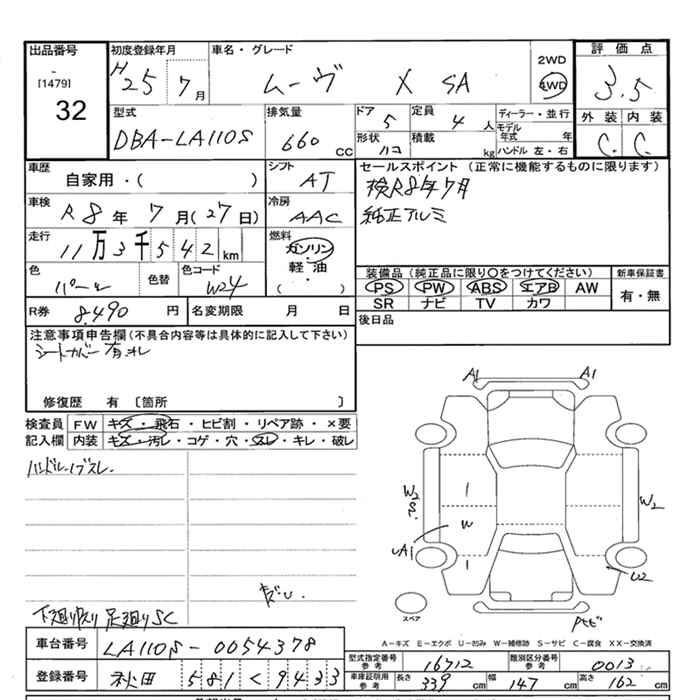 出品番号 初度登録年月 車名・グレード 評価点
[1479] H25 7月 ムーヴ X SA 2WD 4WD 3.5
32
外装 内装
C C
型式 排気量 ドア 定員 ディーラー・並行
DBA-LA110S 660cc 5 4人 モデル年式 年
形状 積載 ハンドル 左・右
ハコ kg
車歴 シフト セールスポイント (正常に機能するものに限ります)
自家用・( ) AT 検R8年7月
車検 冷房 純正アルミ
R8年7月(27日) AAC
走行 燃料
11万3千542km ガソリン
軽・油
( )
色 色替 色コード 装備品(純正品に限り〇をつけてください) 新車保証書
パール W24 PS PW ABS エアB AW 有・無
SR ナビ TV カワ
R券 8,490円 名変期限 月 日 後日品
注意事項申告欄(不具合内容等は具体的に記入して下さい)
シートカバー有
修復歴 有 〔箇所
検査員 FW キズ・飛石・ヒビ割・リペア跡・×要
記入欄 内装 キズ・汚レ・コゲ・穴・スレ・キレ・破レ
ハンドル・ノブスレ
A1 A1
W2 W2
W
A1 U2
スペア
A-キズ E-エクボ U-凹み W-補修跡 S-サビ C-腐食 XX-交換済
足廻りSC
車台番号 LA110S-0054378
型式指定番号 参考 16712 類別区分番号 参考 0013
登録番号 秋田 581 く 9433
車庫証明用 参考 長さ 339cm 幅 147cm 高さ 162cm